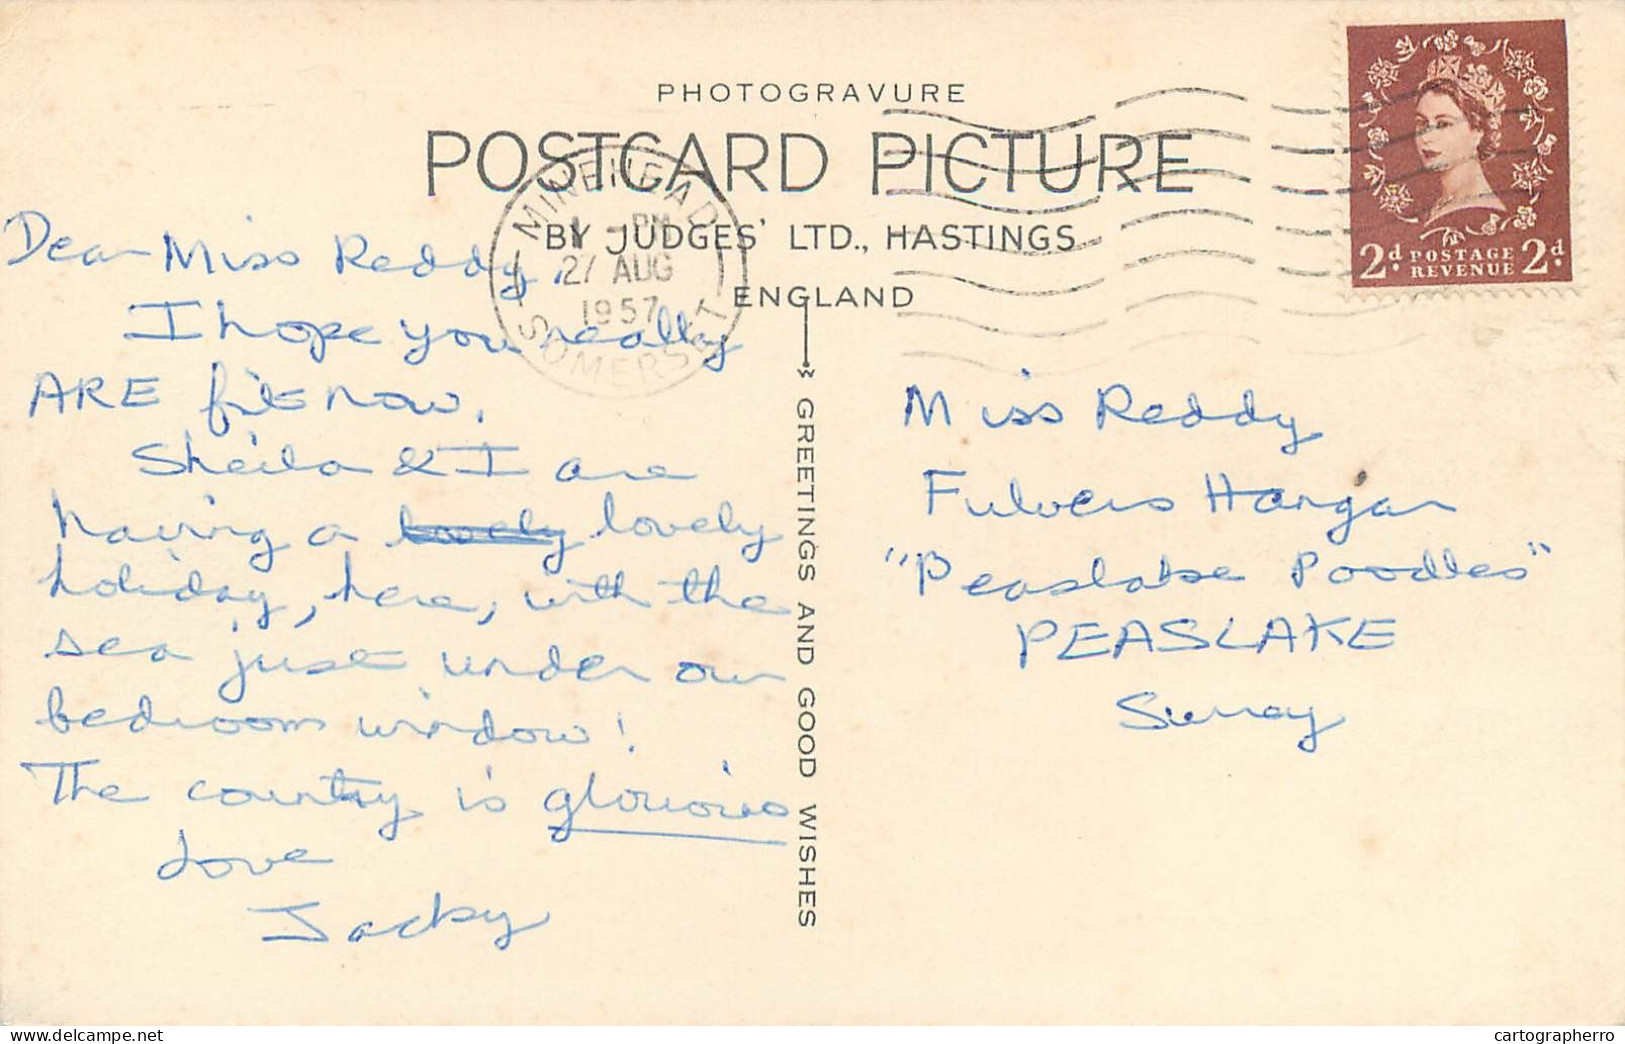 PHOTOGRAVURE
POSTCARD PICTURE
BY JUDGES' LTD., HASTINGS
ENGLAND
MINEHEAD
PM
27 AUG
1957
SOMERSET
2d. POSTAGE REVENUE 2d.
Dear Miss Reddy,
I hope you really
ARE fit now.
Sheila & I are
having a lovely lovely
holiday, here, with the
sea just under our
bedroom window!
The country is glorious
Love
Jacky
GREETINGS AND GOOD WISHES
Miss Reddy
Fulvers Hangar
"Peaslake Poodles"
PEASLAKE
Surrey
www.delcampe.net
cartographerro